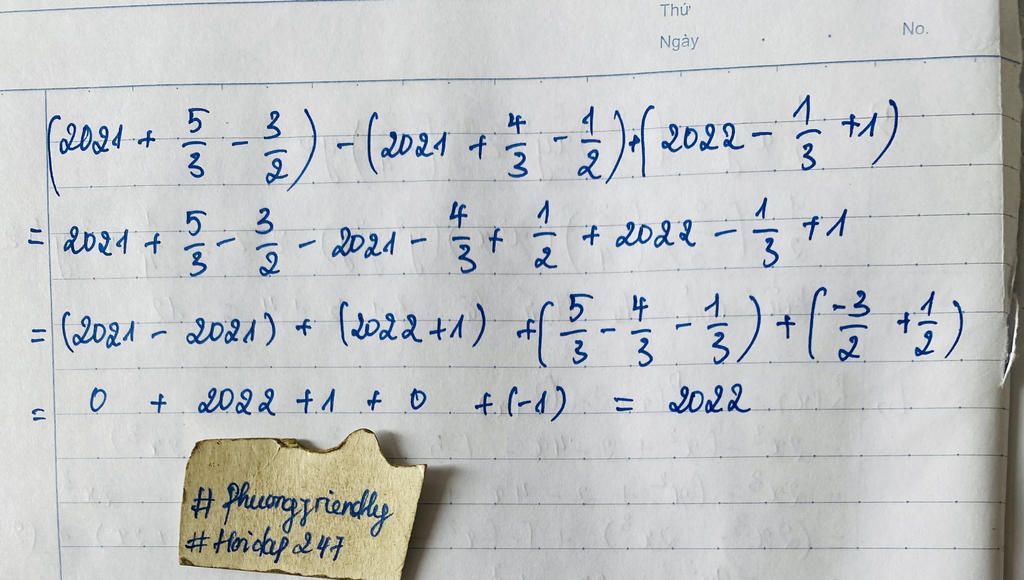 Thứ
Ngày . . No.
(2021 + 5/3 - 3/2) - (2021 + 4/3 - 1/2) + (2022 - 1/3 + 1)
= 2021 + 5/3 - 3/2 - 2021 - 4/3 + 1/2 + 2022 - 1/3 + 1
= (2021 - 2021) + (2022 + 1) + (5/3 - 4/3 - 1/3) + (-3/2 + 1/2)
= 0 + 2022 + 1 + 0 + (-1) = 2022
# phuongfriendly
# Hoidap247